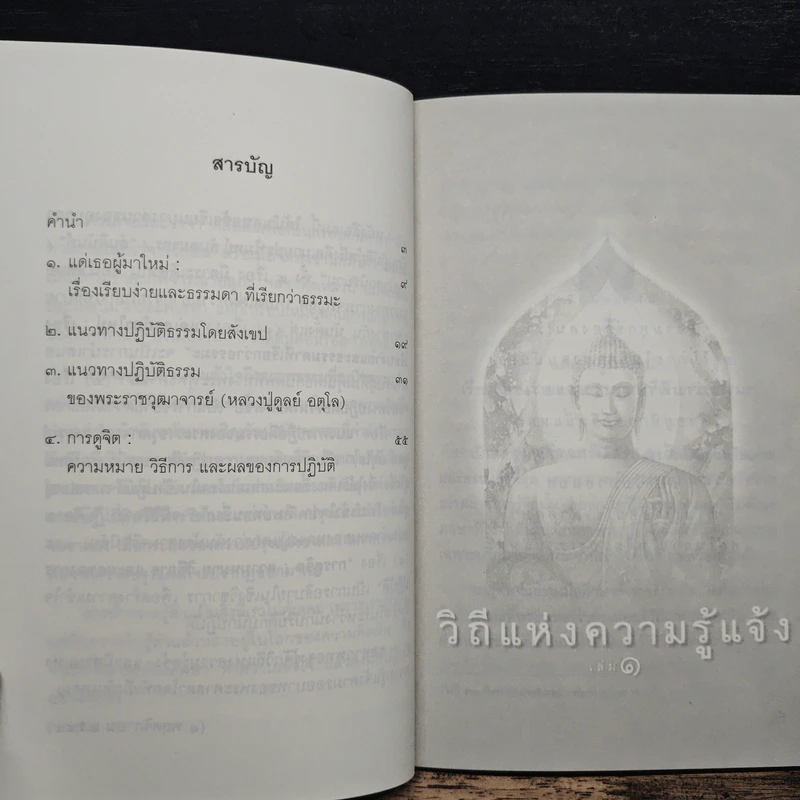 สารบัญ
คำนำ ๓
๑. แด่เธอผู้มาใหม่ : ๙
เรื่องเรียบง่ายและธรรมดา ที่เรียกว่าธรรมะ
๒. แนวทางปฏิบัติธรรมโดยสังเขป ๑๙
๓. แนวทางปฏิบัติธรรม ๓๑
ของพระราชวุฒาจารย์ (หลวงปู่ดูลย์ อตุโล)
๔. การดูจิต : ๕๕
ความหมาย วิธีการ และผลของการปฏิบัติ
วิถีแห่งความรู้แจ้ง
เล่ม๑